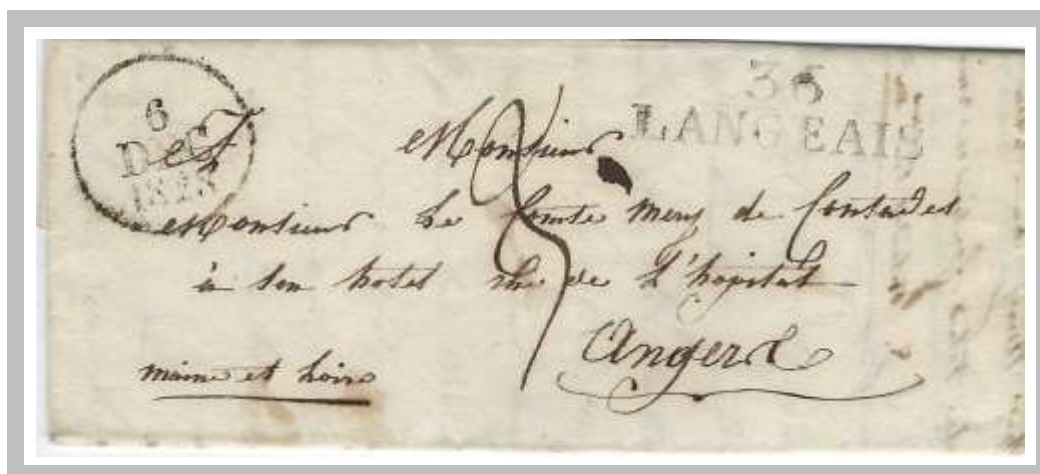 6
DEC
1828
36
LANGEAIS
3
Monsieur
Monsieur Le Comte Mery de Contades
à son hotel rue de L'hopital
Angers
maine et Loire